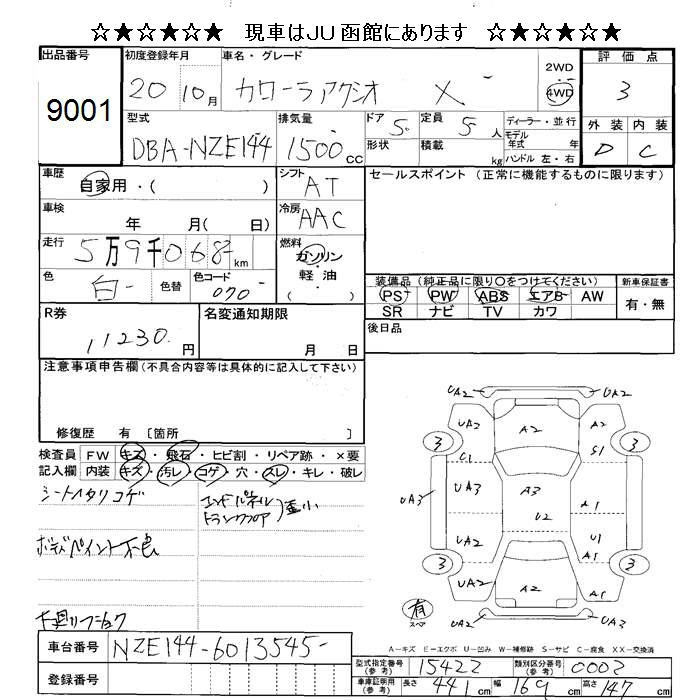 ☆★☆★☆★ 現車はJU函館にあります ☆★☆★☆★
出品番号
9001
初度登録年月
20 10月
車名・グレード
カローラアクシオ X
2WD
4WD
評価点
3
外装 内装
D C
型式
DBA-NZE144
排気量
1500 CC
ドア 5
形状
定員 5 人
積載 kg
ディーラー・並行
モデル年式 年
ハンドル 左・右
車歴
自家用・( )
シフト
AT
車検
年 月( 日)
冷房
AAC
走行
5万9千068 km
燃料
ガソリン
・軽油
( )
色
白
色替
色コード
070
セールスポイント (正常に機能するものに限ります)
装備品(純正品に限り〇をつけてください)
PS PW ABS エアB AW
SR ナビ TV カワ
新車保証書
有・無
後日品
R券
11230 円
名変通知期限
月 日
注意事項申告欄(不具合内容等は具体的に記入して下さい)
修復歴 有 〔箇所 〕
検査員記入欄
FW キズ・飛石・ヒビ割・リペア跡・×要
内装 キズ・汚レ・コゲ・穴・スレ・キレ・破レ
シートヘタリコゲ
エンドパネル
トランクフロア
歪小
ボデーペイント不良
下廻リフショク
UA2 UA2
UA2 A2 A2
3 3
C1 S1
UA3 UA3 A3 A1
U2
UA2 U1
A1
3 3
UA2 A2 A1
UA2 UA3
有
スペア
A-キズ E-エクボ U-凹み W-補修跡 S-サビ C-腐食 XX-交換済
車台番号
NZE144-6013545
登録番号
型式指定番号(参考) 15422
類別区分番号(参考) 0002
車庫証明用(参考) 長さ 441 cm 幅 169 cm 高さ 147 cm